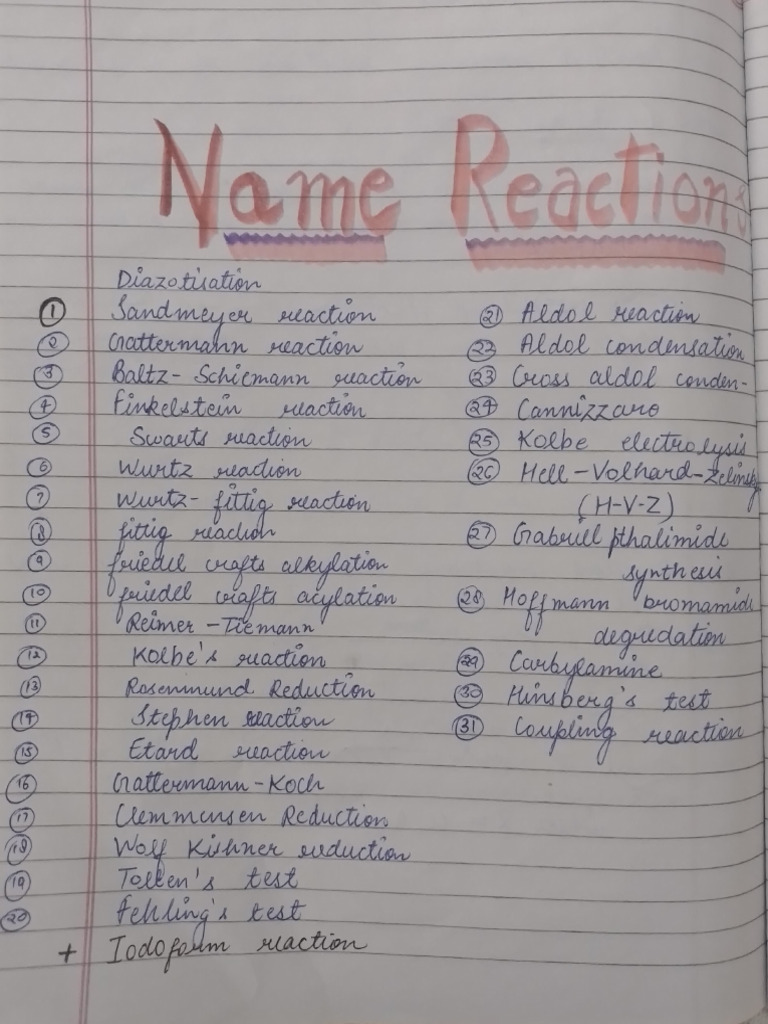 Name Reactions
Diazotisation
① Sandmeyer reaction
② Gattermann reaction
③ Baltz-Schiemann reaction
④ Finkelstein reaction
⑤ Swarts reaction
⑥ Wurtz reaction
⑦ Wurtz-fittig reaction
⑧ fittig reaction
⑨ friedel crafts alkylation
⑩ friedel crafts acylation
⑪ Reimer-Tiemann
⑫ Kolbe's reaction
⑬ Rosenmund Reduction
⑭ Stephen reaction
⑮ Etard reaction
⑯ Gattermann-Koch
⑰ Clemmensen Reduction
⑱ Wolf Kishner reduction
⑲ Tollen's test
⑳ Fehling's test
+ Iodoform reaction
㉑ Aldol reaction
㉒ Aldol condensation
㉓ Cross aldol conden-
㉔ Cannizzaro
㉕ Kolbe electrolysis
㉖ Hell-Volhard-Zelinsky
(H-V-Z)
㉗ Gabriel pthalimide
synthesis
㉘ Hoffmann bromamide
degredation
㉙ Carbylamine
㉚ Hinsberg's test
㉛ Coupling reaction